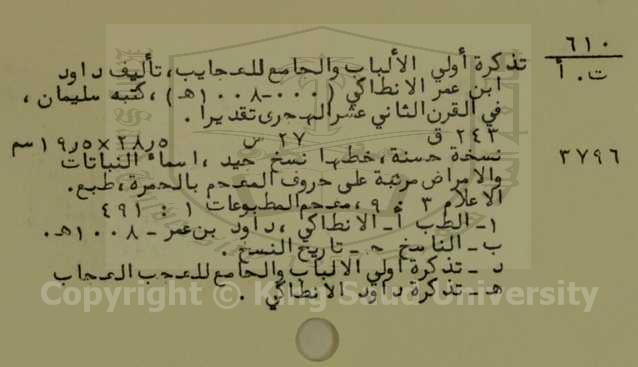 ٦١٠
ت. أ
تذكرة أولي الألباب والجامع للعجايب، تأليف داود
ابن عمر الانطاكي (٠٠٠-١٠٠٨هـ)، كتبه سليمان،
في القرن الثاني عشر الهجرى تقديرا.
٢٤٣ ق ٢٧ س ٢٨٫٥×١٩٫٥ سم
٣٧٩٦
نسخة حسنة، خطها نسخ جيد، اسماء النباتات
والامراض مرتبة على حروف المعجم بالحمرة، طبع.
الاعلام ٣ : ٩، معجم المطبوعات ١ : ٤٩١
١- الطب أ- الانطاكي، داود بن عمر - ١٠٠٨هـ.
ب- الناسخ ج- تاريخ النسخ.
د- تذكرة أولي الالباب والجامع للعجب العجاب
هـ- تذكرة داود الانطاكي.
Copyright © King Saud University